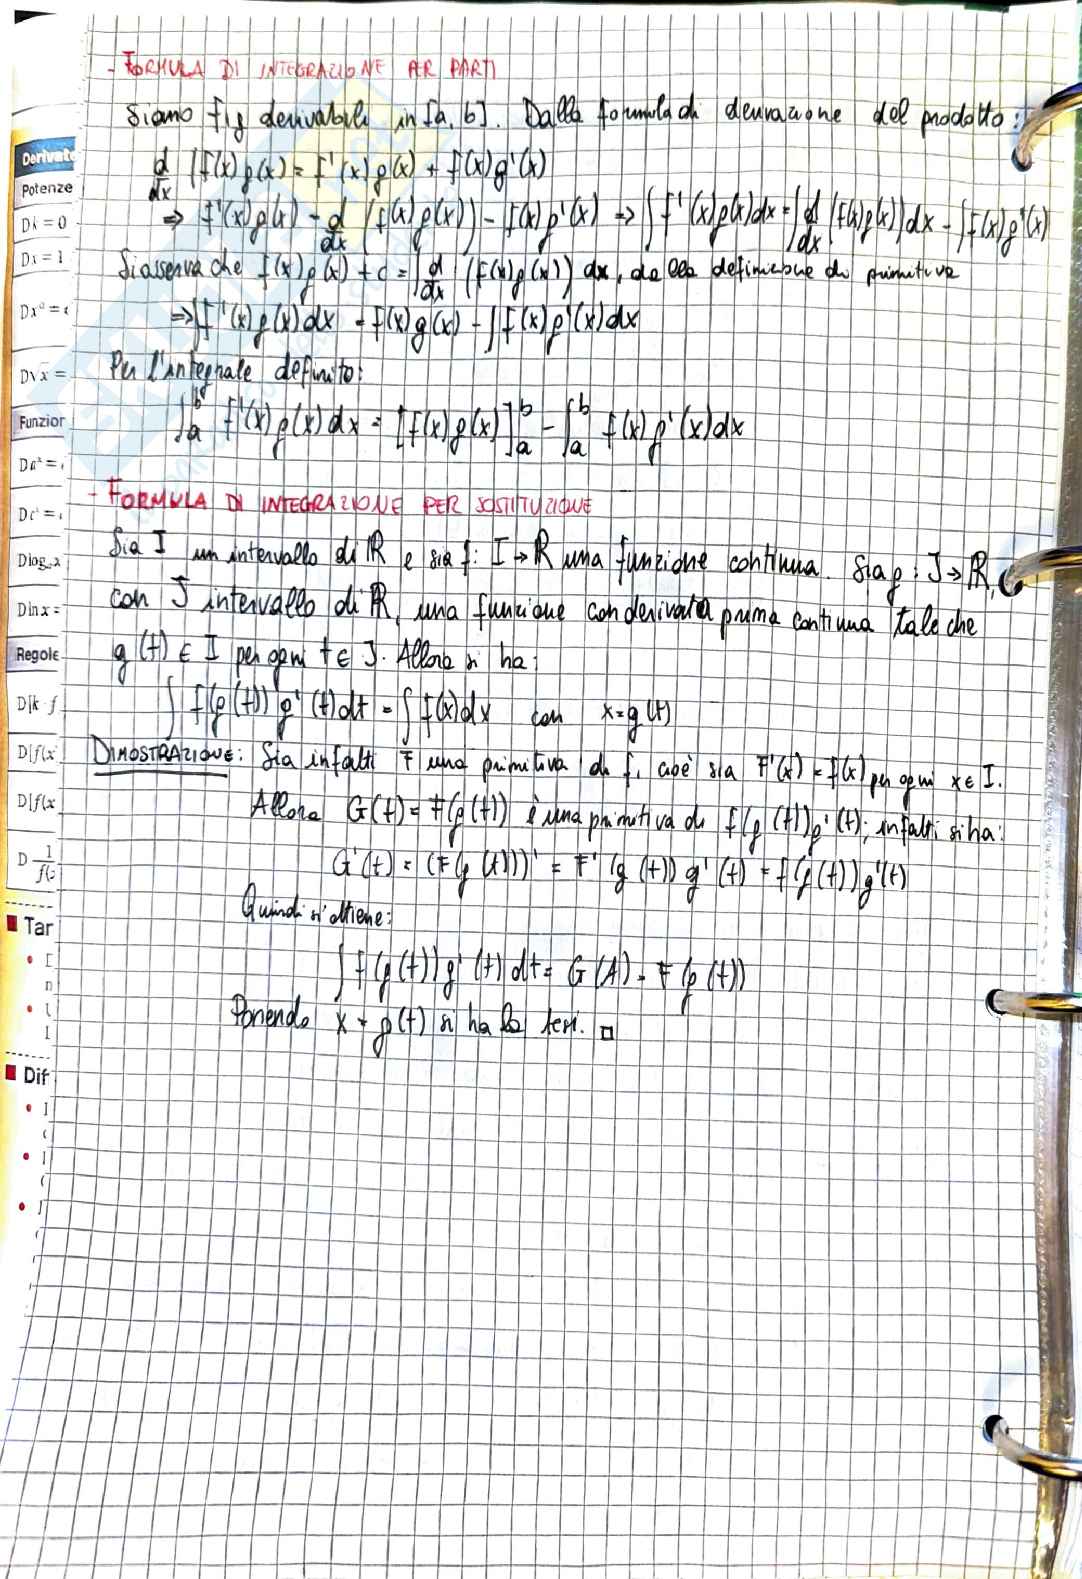 - FORMULA DI INTEGRAZIONE PER PARTI
Siano f, g derivabili in [a, b]. Dalla formula di derivazione del prodotto:
d/dx (f(x)g(x) = f'(x)g(x) + f(x)g'(x)
⇒ f'(x)g(x) = d/dx (f(x)g(x)) - f(x)g'(x) ⇒ ∫f'(x)g(x)dx = ∫d/dx (f(x)g(x))dx - ∫f(x)g'(x)
Si osserva che f(x)g(x) + c = ∫d/dx (f(x)g(x)) dx, dalla definizione di primitiva
⇒ ∫f'(x)g(x)dx = f(x)g(x) - ∫f(x)g'(x)dx
Per l'integrale definito:
∫_a^b f'(x)g(x)dx = [f(x)g(x)]_a^b - ∫_a^b f(x)g'(x)dx
- FORMULA DI INTEGRAZIONE PER SOSTITUZIONE
Sia I un intervallo di ℝ e sia f: I → ℝ una funzione continua. Sia g: J → ℝ,
con J intervallo di ℝ, una funzione con derivata prima continua tale che
g(t) ∈ I per ogni t ∈ J. Allora si ha:
∫f(g(t))g'(t)dt = ∫f(x)dx con x=g(t)
DIMOSTRAZIONE: Sia infatti F una primitiva di f, cioè sia F'(x) = f(x) per ogni x ∈ I.
Allora G(t) = F(g(t)) è una primitiva di f(g(t))g'(t); infatti si ha:
G'(t) = (F(g(t)))' = F'(g(t)) g'(t) = f(g(t))g'(t)
Quindi si ottiene:
∫f(g(t))g'(t)dt = G(t) = F(g(t))
Ponendo x = g(t) si ha la tesi. □
Derivate
Potenze
Dk = 0
Dx = 1
D√x =
Funzior
Dlog
Dln x =
Regole
D[k · f
D[f(x
D[f(x
D 1/f(
Tar
Dif